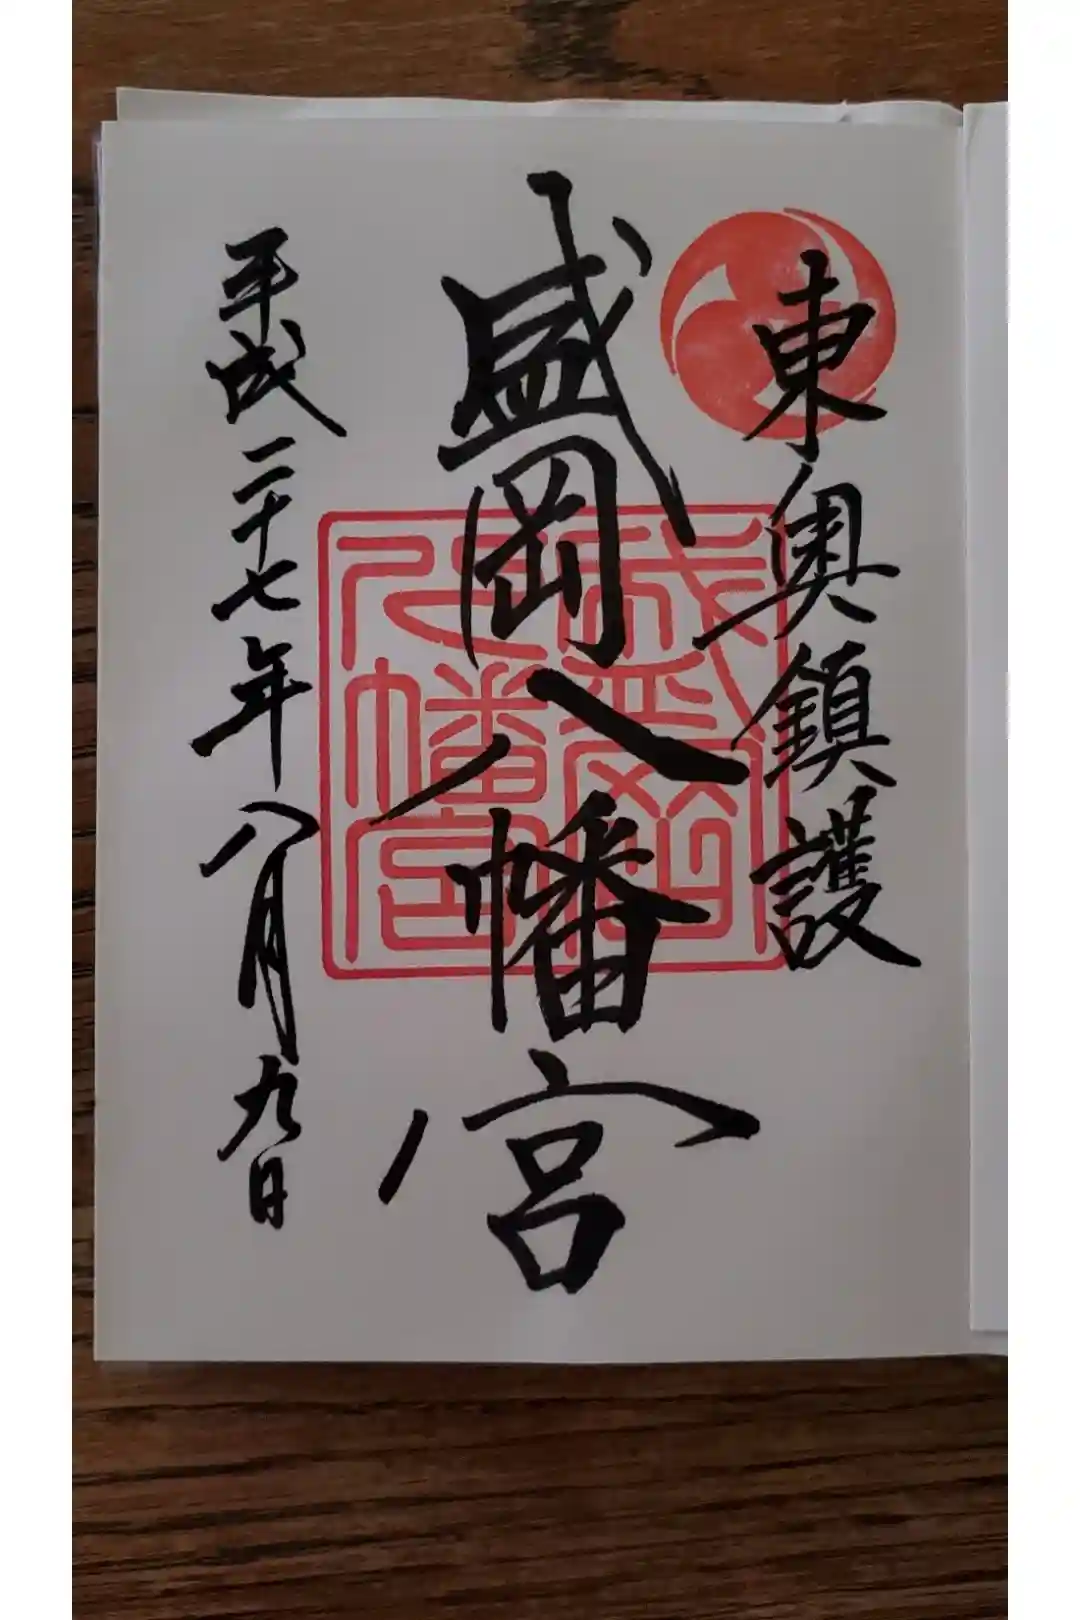 東奥鎮護
盛岡八幡宮
盛岡八幡宮
平成二十七年八月九日